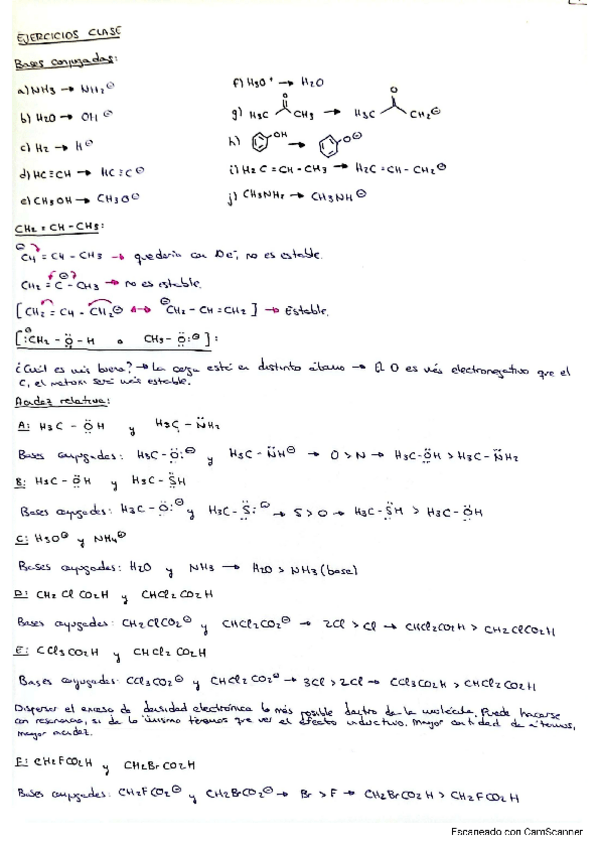 EJERCICIOS CLASE
Bases conjugadas:
a) NH3 → NH2⊖
b) H2O → OH⊖
c) H2 → H⊖
d) HC≡CH → HC≡C⊖
e) CH3OH → CH3O⊖
f) H3O+ → H2O
g) H3C O CH3 → H3C O CH2⊖
h) OH → O⊖
i) H2C=CH-CH3 → H2C=CH-CH2⊖
j) CH3NH2 → CH3NH⊖
CH2=CH-CH3:
⊖CH=CH-CH3 → quedaría con De-, no es estable.
CH2=C⊖-CH3 → no es estable.
[CH2=CH-CH2⊖ ↔ ⊖CH2-CH=CH2] → Estable.
[:⊖CH2-Ö-H o CH3-Ö:⊖]:
¿Cuál es más buena? → La carga está en distinto átomo → El O es más electronegativo que el
C, el metoxi será más estable.
Acidez relativa:
A: H3C-ÖH y H3C-N̈H2
Bases conjugadas: H3C-Ö:⊖ y H3C-N̈H⊖ → O>N → H3C-ÖH > H3C-N̈H2
B: H3C-ÖH y H3C-S̈H
Bases conjugadas: H3C-Ö:⊖ y H3C-S̈:⊖ → S>O → H3C-S̈H > H3C-ÖH
C: H3O⊕ y NH4⊕
Bases conjugadas: H2O y NH3 → H2O > NH3 (base)
D: CH2ClCO2H y CHCl2CO2H
Bases conjugadas: CH2ClCO2⊖ y CHCl2CO2⊖ → 2Cl > Cl → CHCl2CO2H > CH2ClCO2H
E: CCl3CO2H y CHCl2CO2H
Bases conjugadas: CCl3CO2⊖ y CHCl2CO2⊖ → 3Cl > 2Cl → CCl3CO2H > CHCl2CO2H
Dispersar el exceso de densidad electrónica lo más posible dentro de la molécula. Puede hacerse
con resonancia, si da lo mismo tenemos que ver el efecto inductivo. Mayor cantidad de átomos,
mayor acidez.
F: CH2FCO2H y CH2BrCO2H
Bases conjugadas: CH2FCO2⊖ y CH2BrCO2⊖ → Br > F → CH2BrCO2H > CH2FCO2H
Escaneado con CamScanner